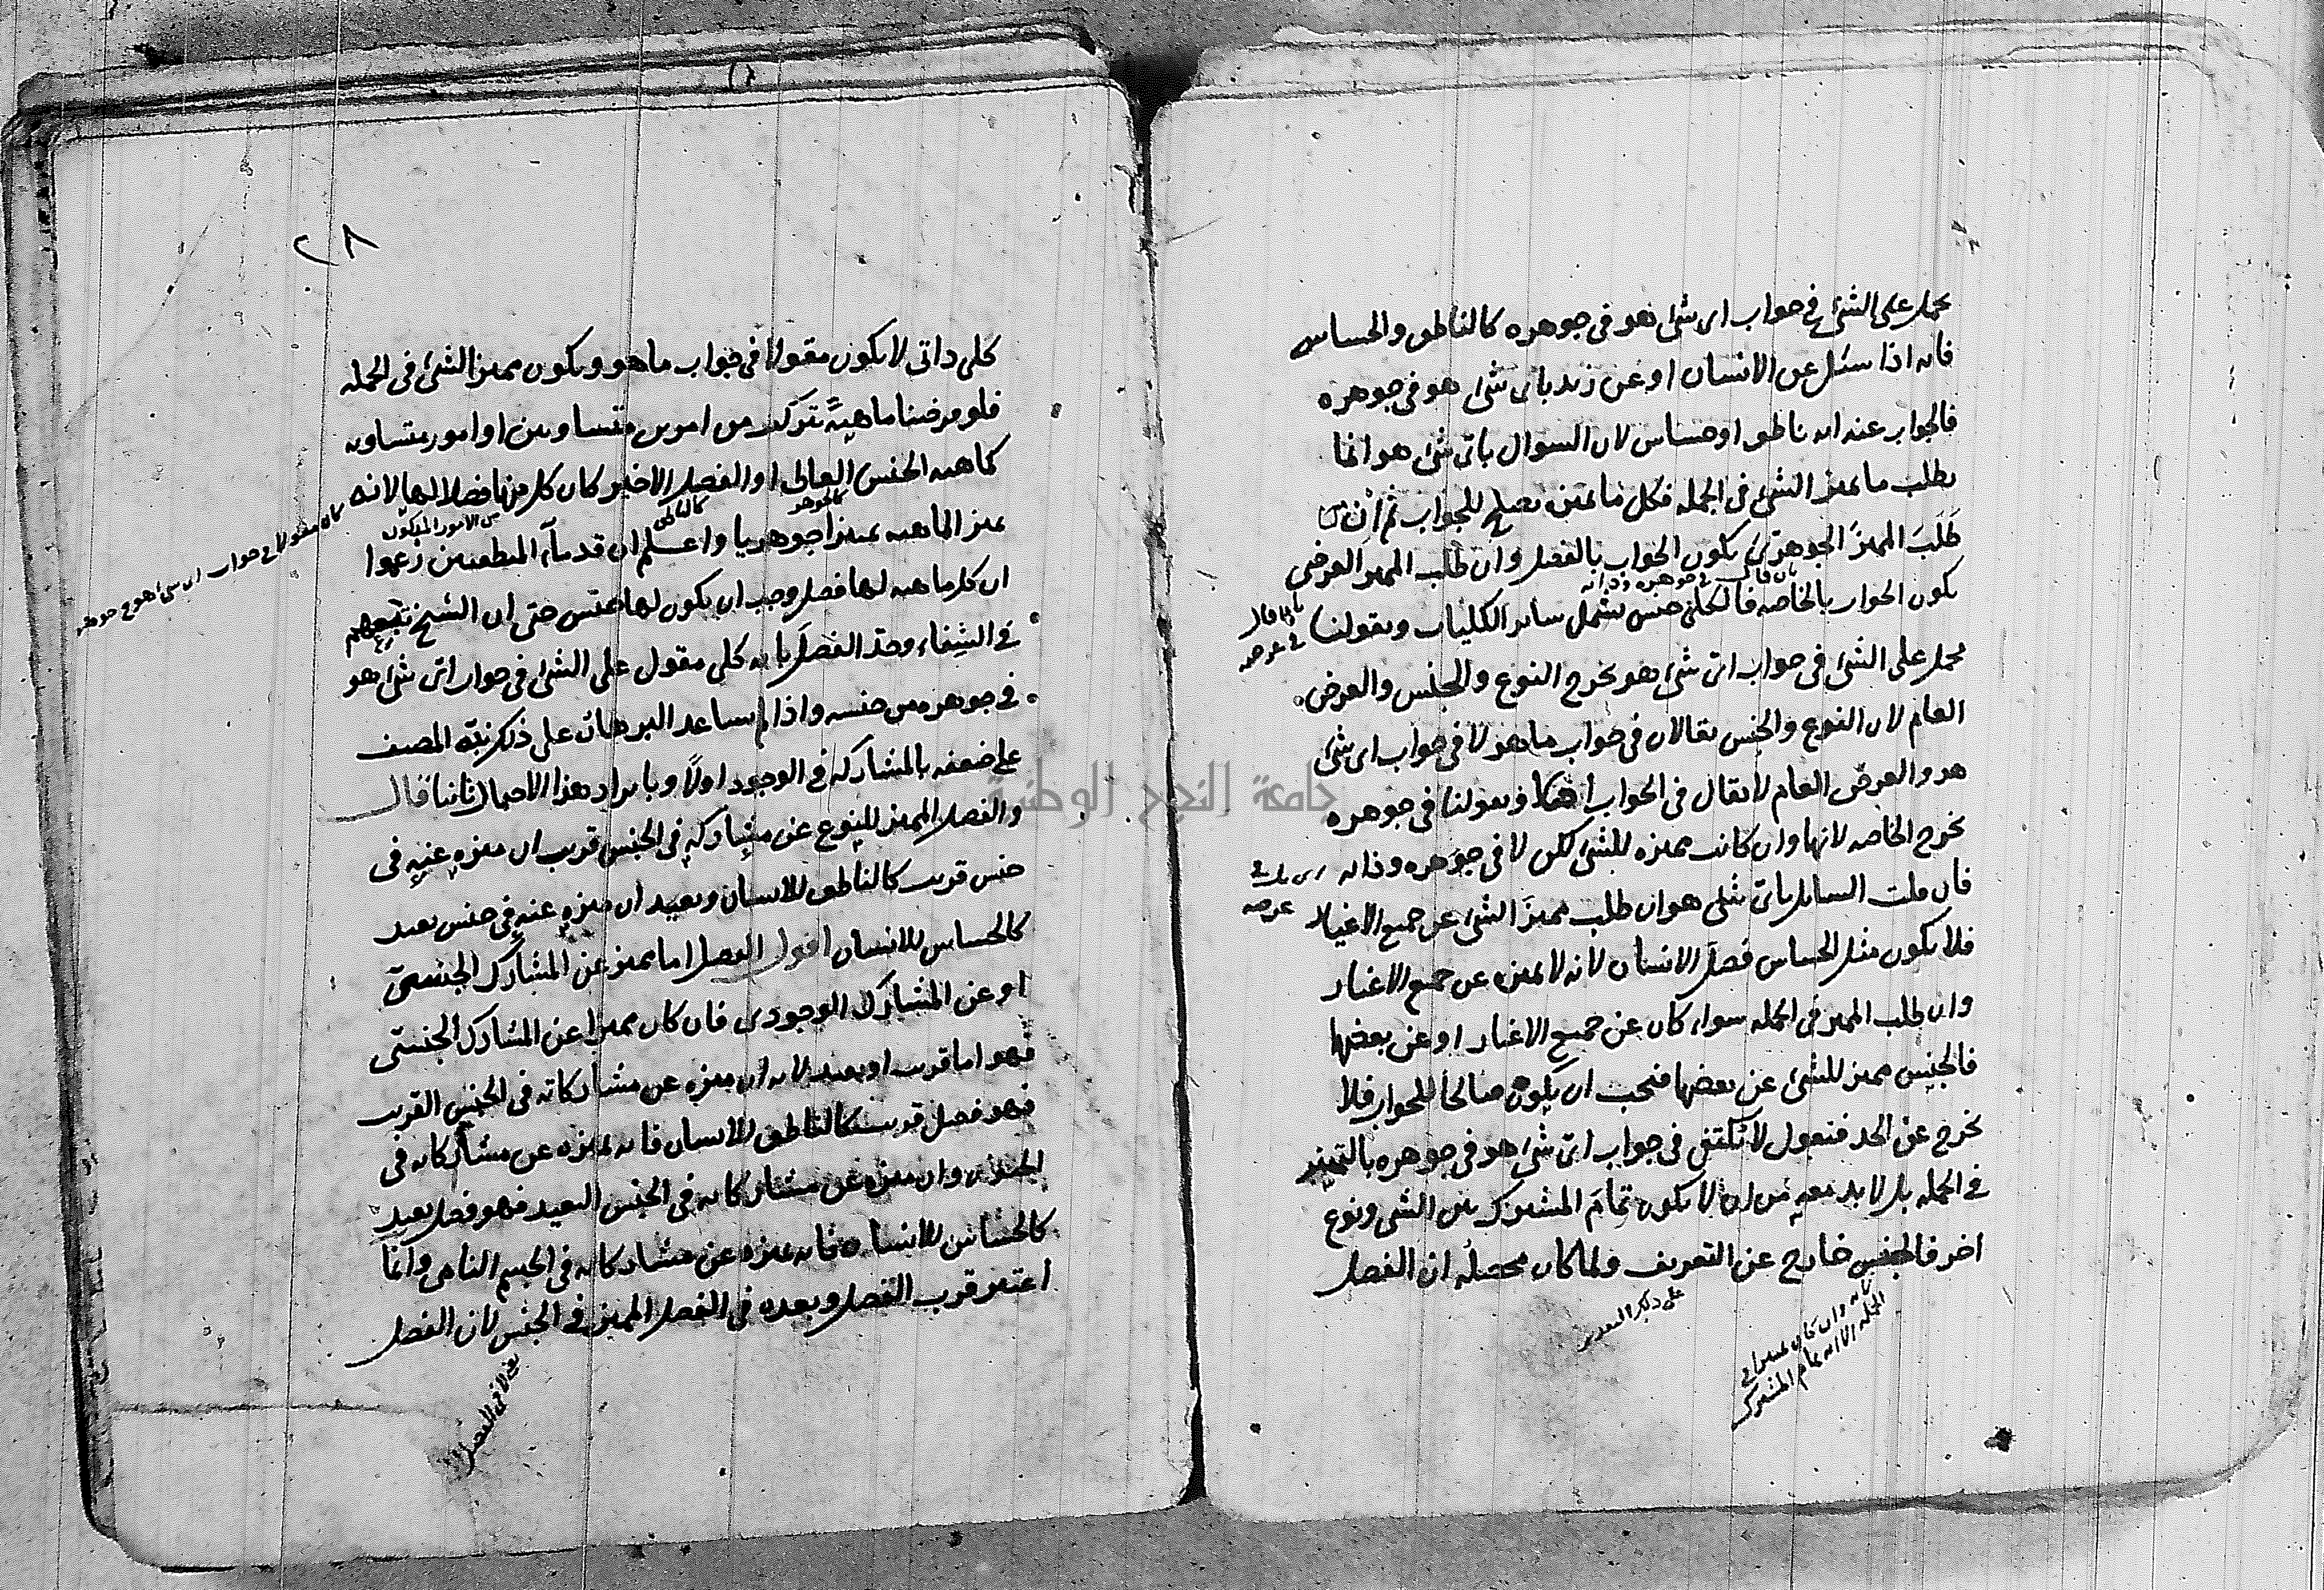 يحمل على الشئ في جواب اى شئ هو فى جوهره كالناطق والحساس
فانه اذا سئل عن الانسان او عن زيد باى شئ هو فى جوهره
فالجواب عنه انه ناطق او حساس لان السوال باى شئ هو انما
يطلب ما يميز الشئ فى الجمله فكل ما يميزه يصلح للجواب ثم ان
طَلَبَ المميزَ الجوهرىَّ يكون الجواب بالفصل وان طلب المميز العرضى
بان قال فى جوهره وذاته
يكون الجواب بالخاصه فالكلى جنس يشمل سائر الكليات وبقولنا
بان قال
فى عرضه
يحمل على الشئ فى جواب اى شئ هو يخرج النوع والجنس والعرض
العام لان النوع والجنس يقالان فى جواب ما هو لا فى جواب اى شئ
هو والعرض العام لا يقال فى الجواب اصلا وبقولنا فى جوهره
يخرج الخاصه لانها وان كانت مميزه للشئ لكن لا فى جوهره وذاته
بل فى
عرضه
فان قلت السائل باى شئ هو ان طلب مميزَ الشئ عن جميع الاغيار
فلا يكون مثل الحساس فصلَ الانسان لانه لا يميزه عن جميع الاغيار
وان طلب المميز فى الجمله سواء كان عن جميع الاغيار او عن بعضها
فالجنس مميز للشئ عن بعضها فيجب ان يكون صالحا للجواب فلا
يخرج عن الحد فنقول لا نكتفى فى جواب اى شئ هو فى جوهره بالتمييز
فى الجمله بل لا بد معه من ان لا يكون تمامَ المشترك بين الشئ ونوع
اخر فالجنس خارج عن التعريف ولما كان محصله ان الفصل
على ذلك التقدير
فانه وان كان مميزا فى
الجمله الا انه تمام المشترك
٢٨
كلى ذاتى لا يكون مقولا فى جواب ما هو ويكون مميز الشئ فى الجمله
فلو فرضنا ماهيةً تركب من امرين متساويين او امور متساويه
كماهيه الجنس العالى او الفصل الاخير كان كل منها فصلا لها لانه
كالجوهر
كالناطق
من الامور المذكوره
كان مقولا فى جواب اى شئ هو فى جوهره
يميز الماهيه تمييزا جوهريا واعلم ان قدماء المنطقيين زعموا
ان كل ماهيه لها فصل وجب ان يكون لها جنس حتى ان الشيخ تبعهم
فى الشفاء وحدّ الفصل بانه كلى مقول على الشئ فى جواب اى شئ هو
فى جوهره من جنسه واذا لم يساعد البرهان على ذلك نبّه المصنف
على ضعفه بالمشاركه فى الوجود اولا وبايراد هذا الاحتمال ثانيا قال
والفصل المميز للنوع عن مشاركه فى الجنس قريب ان ميزه عنه فى
جنس قريب كالناطق للانسان وبعيد ان ميزه عنه فى جنس بعيد
كالحساس للانسان اقول الفصل اما مميز عن المشارك الجنسى
او عن المشارك الوجودى فان كان مميزا عن المشارك الجنسى
فهو اما قريب او بعيد لانه ان ميزه عن مشاركاته فى الجنس القريب
فهو فصل قريب كالناطق للانسان فانه يميزه عن مشاركاته فى
الحيوان وان ميزه عن مشاركاته فى الجنس البعيد فهو فصل بعيد
كالحساس للانسان فانه يميزه عن مشاركاته فى الجسم النامى وانما
اعتبر قرب الفصل وبعده فى الفصل المميز فى الجنس لان الفصل
جامعة النجاح الوطنية